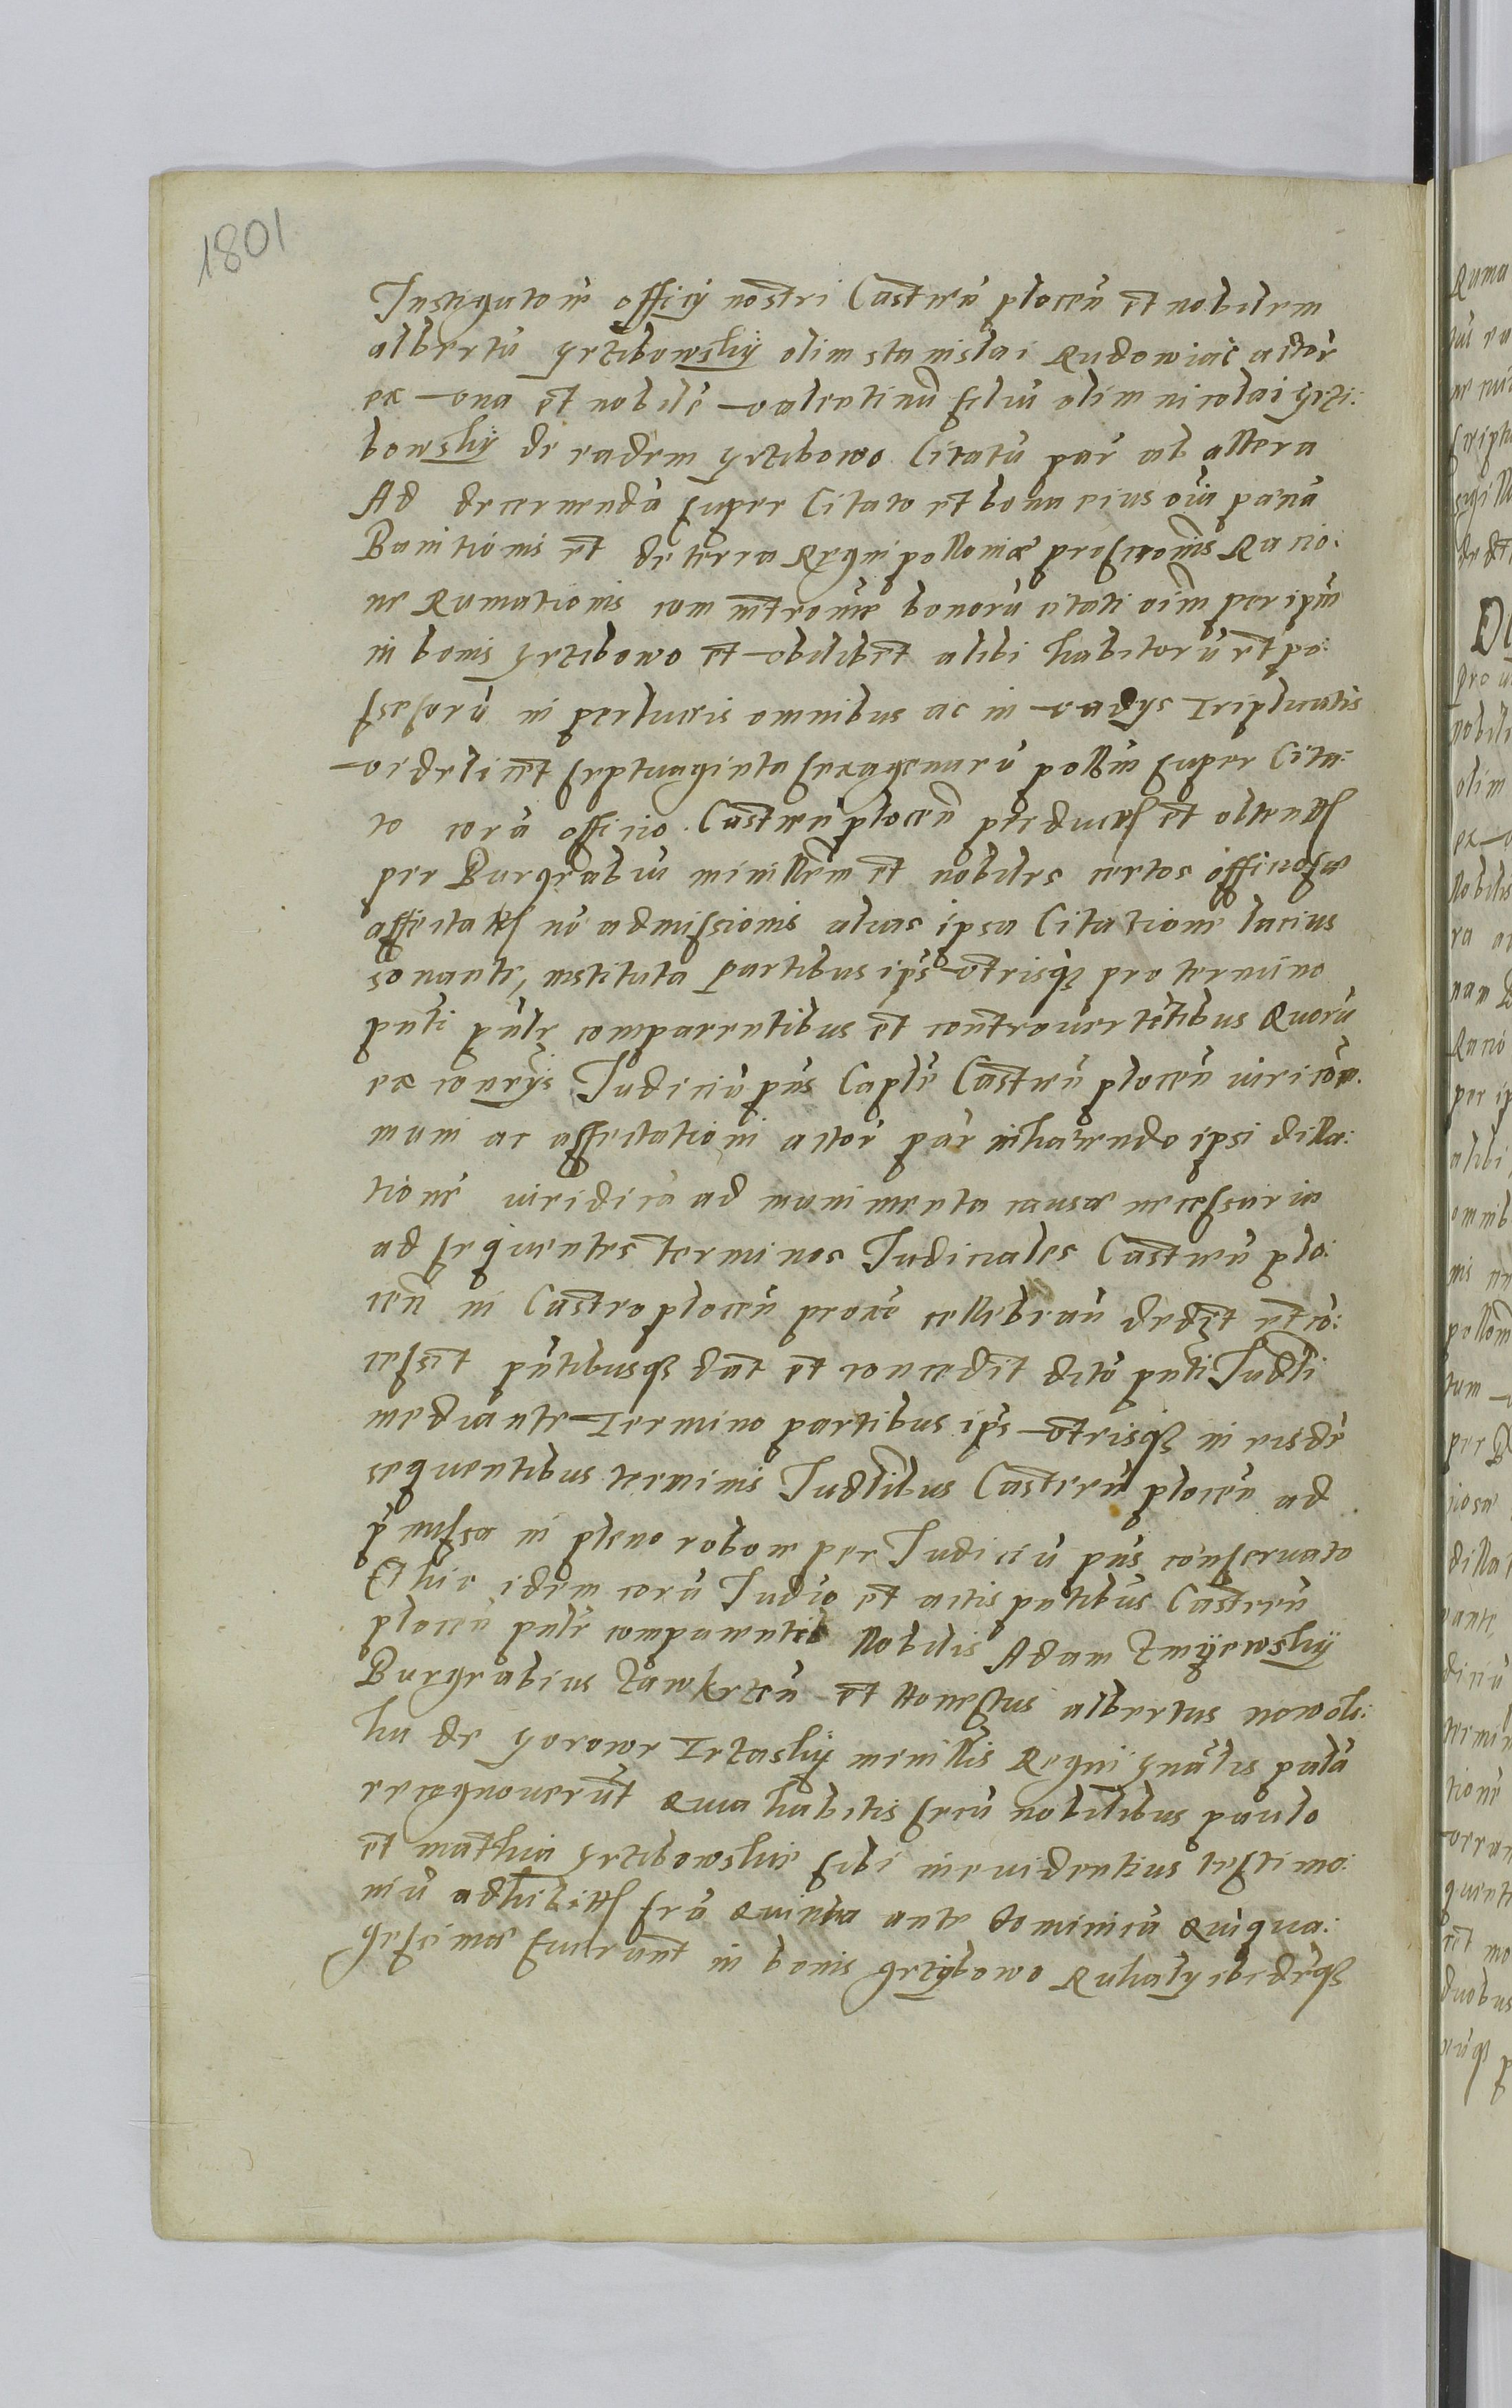 1801
Instigatorē officÿ nostri Castreñ ploceñ et nobilem
albertū grzibowskÿ olim stanislai Rudowiać actor̄
ex vna et nobilē valentinū filiū olim nicolai grzi:
bowskÿ de eadem grzibowo Citatū par̄ ab altera
Ad decernendā super Citato et bona eius oīa pænā
Banitionis et de terra Regni polloniæ proscr̄onis Racio:
ne Rumationis cum intromē bonorū citati oīm per ipm̄
in bonis grzibowo et vbilibet alibi habitorū et po:
ssesorū in perlucris omnibus ac in vadÿs triplicatis
videlicet septuaginta sexagenarū pollīn super Cita:
to corā officio Castreñ plocen̄ perduces et obtentes
per Burgrabiū ministr̄m et nobiles certos officiosæ
affectates nō admissionis alias ipsa Citatione lacius
sonante, instituta partibus ip̄s vtrisq₃ pro termino
pn̄ti pn̄lr̄ comparentibus et controuertētibus Quorū
ex conr̄ÿs Judiciū pn̄s Caplē Castreñ plocen̄ iuri com̄
muni ac affectationi actor̄ par̄ inhærendo ipsi dilla:
tionē iuridicā ad munimenta causæ necessaria
ad sequentes terminos Judiciales Castreñ plo:
cen̄ in Castro plocen̄ proxē cellebran̄ dedit et cō:
cessit pn̄tibusq₃ dat et concedit dicto pn̄ti Judl̄i
mediante Termino partibus ip̄s vtrisq₃ in eisdē
sequentibus terminis Judl̄ibus Castreñ plocen̄ ad
p̄missa in pleno robore per Judiciū pn̄s conseruato
Et hic idem corā Judo et actis pn̄tibus Castreñ
plocen̄ pn̄lr̄ comparentes Nobilis Adam Zmÿewskÿ
Burgrabius Zawkrzen̄ et Honestus albertus nowok:
ka de gorowe Trzaskÿ ministr̄ Regni gnālis palā
recognouerūt Quia habitis secū nobilibus paulo
et mathia grzibowskie sibi in euidentius testimo:
niū adhibitis feria Quinta ante Dominicā Quiqua:
gesimæ fuerunt in bonis grzybowo Kuhały ibidēq₃